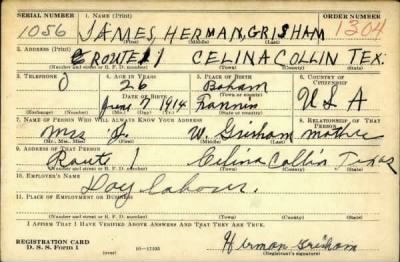 SERIAL NUMBER 1. NAME (Print) ORDER NUMBER
1056 JAMES, HERMAN, GRISHAM 1304
(First) (Middle) (Last)
2. ADDRESS (Print)
ROUTE 1 CELINA COLLIN TEX.
(Number and street or R. F. D. number) (Town) (County) (State)
3. TELEPHONE 4. AGE IN YEARS 5. PLACE OF BIRTH 6. COUNTRY OF CITIZENSHIP
26 Bonham
DATE OF BIRTH (Town or county)
June 7 1914 Fannin U S A
(Exchange) (Number) (Mo.) (Day) (Yr.) (State or country)
7. NAME OF PERSON WHO WILL ALWAYS KNOW YOUR ADDRESS 8. RELATIONSHIP OF THAT PERSON
Mrs J. W. Grisham mother
(Mr., Mrs., Miss) (First) (Middle) (Last)
9. ADDRESS OF THAT PERSON
Route 1 Celina Collin Texas
(Number and street or R. F. D. number) (Town) (County) (State)
10. EMPLOYER'S NAME
Day labour.
11. PLACE OF EMPLOYMENT OR BUSINESS
(Number and street or R. F. D. number) (Town) (County) (State)
I AFFIRM THAT I HAVE VERIFIED ABOVE ANSWERS AND THAT THEY ARE TRUE.
REGISTRATION CARD
D. S. S. Form 1 Herman Grisham
(Registrant's signature)